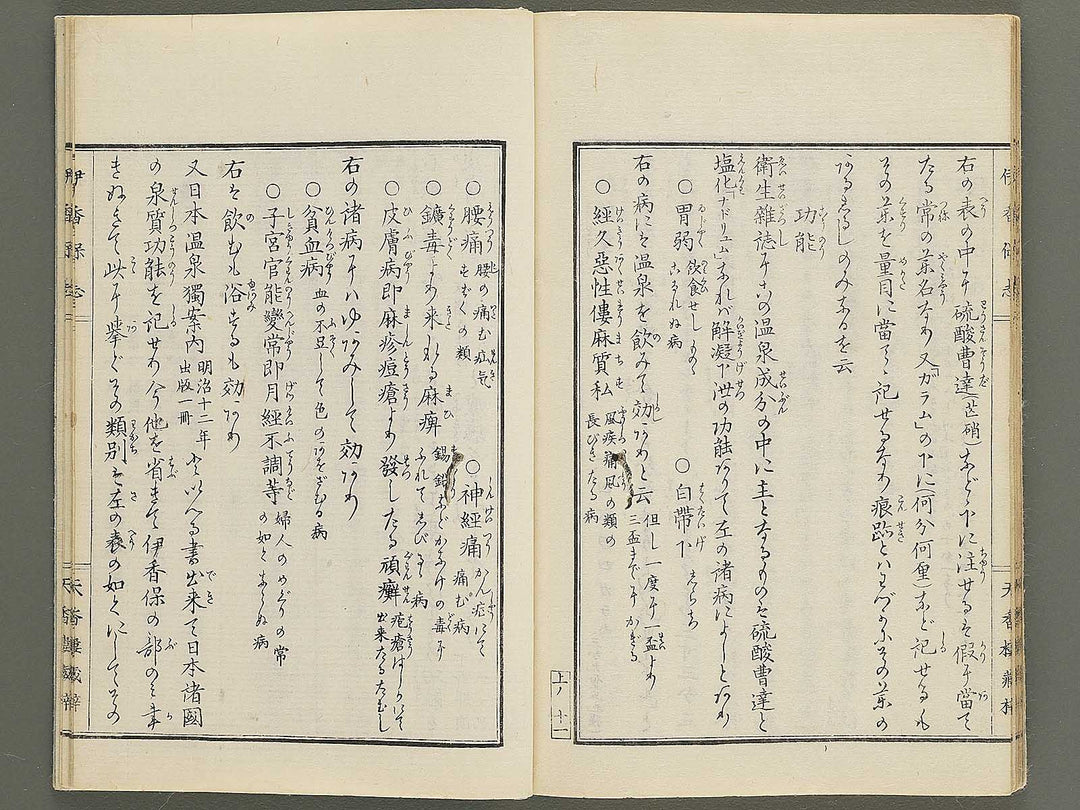 右の表の中に硫酸曹達(芒硝)などゝ下に注せるを假に當て
たる常の薬名なり又「ガラム」の下に(何分何厘)など記せるも
その薬を量目に當てゝ記せるなり痕跡とハわづかにその薬の
あるしるしのみあるを云
功能
衛生雑誌にこの温泉成分の中に主となるものを硫酸曹達と
塩化「ナドリユム」なれバ解凝下泄の功能ありて左の諸病によしとあり
○胃弱 飲食せしものこなれぬ病 ○白帯下 しらち
右の病にを温泉を飲みて効ありと云 但し一度に一盃より三盃までにかぎる
○經久惡性僂麻質私 風疾痛風の類の長びきたる病
上ノ十一
○腰痛 腰の痛む疝氣もすぢの類 ○神經痛 かん症にて痛む病
○鑛毒より来れる麻痹 錫鉛などかねけの毒にふれてしびるゝ病
○皮膚病即麻疹痘瘡より發したる頑癬 疱瘡はしかにて出来たるたむし
右の諸病にハゆあみして効あり
○貧血病 血の不足して色のあをざむる病
○子宮官能變常即月經不調等 婦人のめぐりの常の如くならぬ病
右を飲むも浴するも効あり
又日本温泉獨案内 明治十二年出版一冊 といへる書出来て日本諸國
の泉質功能を記せり今他を省きて伊香保の部のミ書
きぬきて此に擧ぐその類別を左の表の如くにしてその